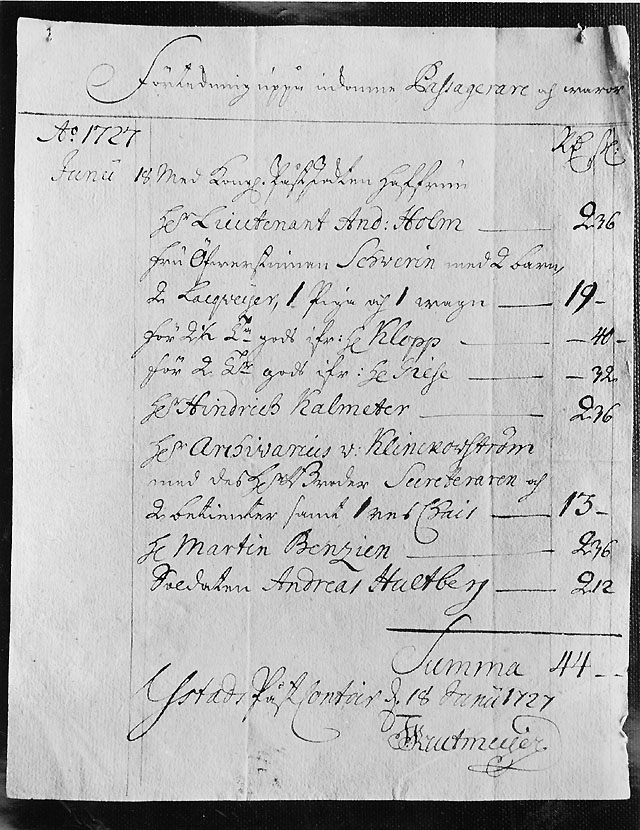 Förtechning uppå inkomne Passagerare och waror
Ao. 1727 Rd. st.
Junii 18 Med Kongl. Påst Jakten Haffruu
Hr Lieutenant And: Holm — 2 36
Fru Öfwerstinnan Schwerin med 2 barn,
2 Lacqveijer, 1 Piga och 1 wagn — 19 -
för 2½ gods ifr: He Klopp — - 40 -
för 2 gods ifr: He Giese — - 32
Hr Hindrich Kalmeter — 2 36
Hr Archivarius v: Klinckowström
med des Broder Secreteraren och
2 betienter samt 1 Chais — 13 -
He Martin Benzien — 2 36
Soldaten Andreas Hultberg — 2 12
Summa 44 - -
Ystads Påst Contoir d. 18 Junii 1727